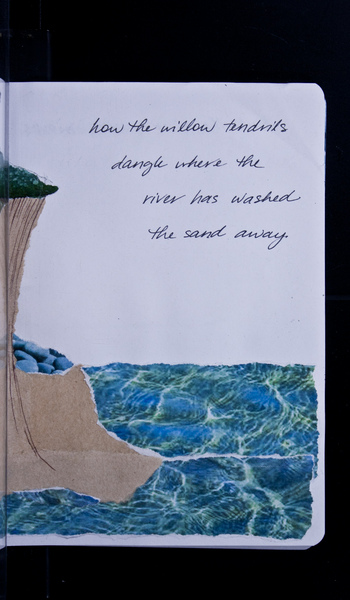 how the willow tendrils
dangle where the
river has washed
the sand away.